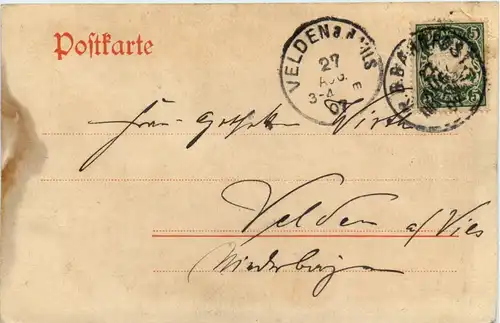 Postkarte
VELDEN a. VILS
27
AUG.
3-4
07
5 5
K.B.BAHNPOST
Frau Apotheker Wirth
Velden a/Vils
Niederbayern